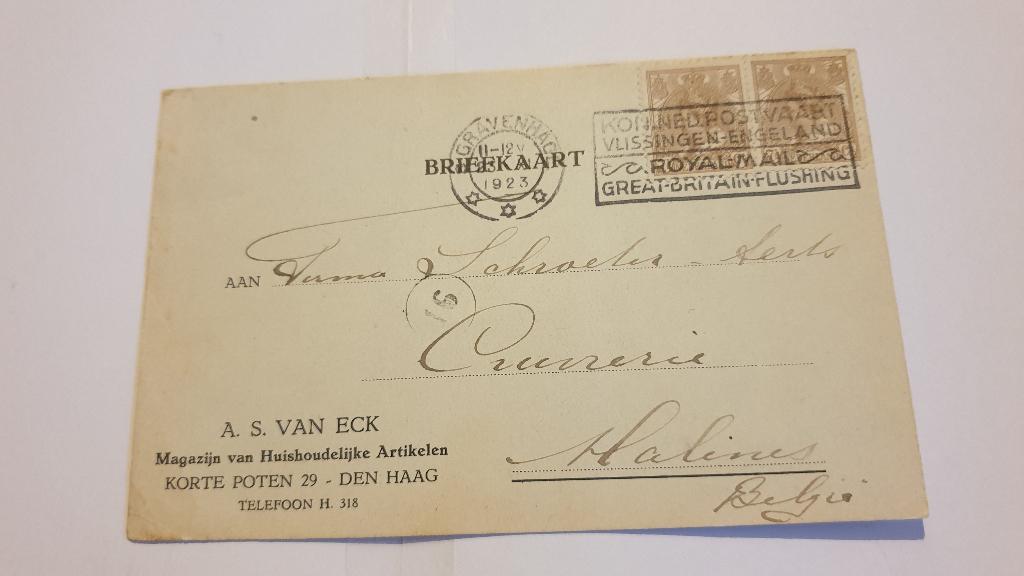 'S GRAVENHAGE
11-12V
1923
BRIEFKAART
KON.NED.POSTVAART
VLISSINGEN-ENGELAND
ROYAL-MAIL
GREAT-BRITAIN-FLUSHING
AAN Firma Schroeter - Aerts
91
Cuivrerie
Malines
België
A. S. VAN ECK
Magazijn van Huishoudelijke Artikelen
KORTE POTEN 29 - DEN HAAG
TELEFOON H. 318